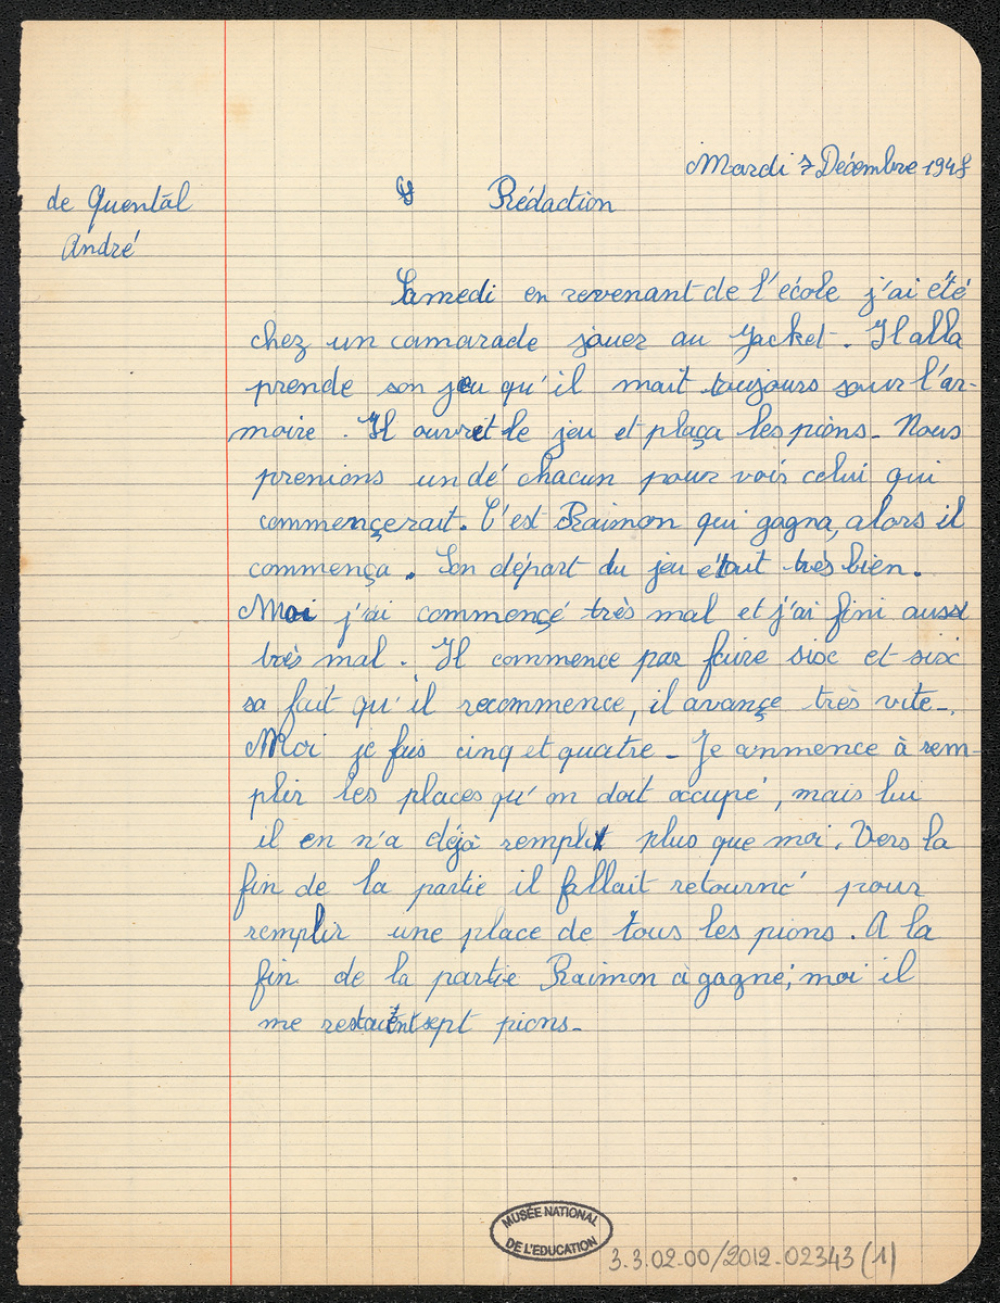 Mardi 7 Décembre 1948
de Quental
André
Rédaction
Samedi en revenant de l'école j'ai été
chez un camarade jouer au Jacket. Il alla
prende son jeu qu'il mait toujours sour l'ar-
moire. Il ouvrit le jeu et plaça les pions. Nous
prenions un dé chacun pour voir celui qui
commençerait. C'est Raimon qui gagna, alors il
commença. Son départ du jeu était très bien.
Moi j'ai commençé très mal et j'ai fini aussi
très mal. Il commence par faire six et six
sa fait qu'il recommence, il avançe très vite.
Moi je fais cinq et quatre - Je commence à rem-
plir les places qu'on doit occupé, mais lui
il en n'a déjà remplit plus que moi. Vers la
fin de la partie il fallait retourné pour
remplir une place de tous les pions. A la
fin de la partie Raimon à gagné, moi il
me restaient sept pions-
MUSÉE NATIONAL
DE L'EDUCATION
3.3.02.00/2012.02343 (1)